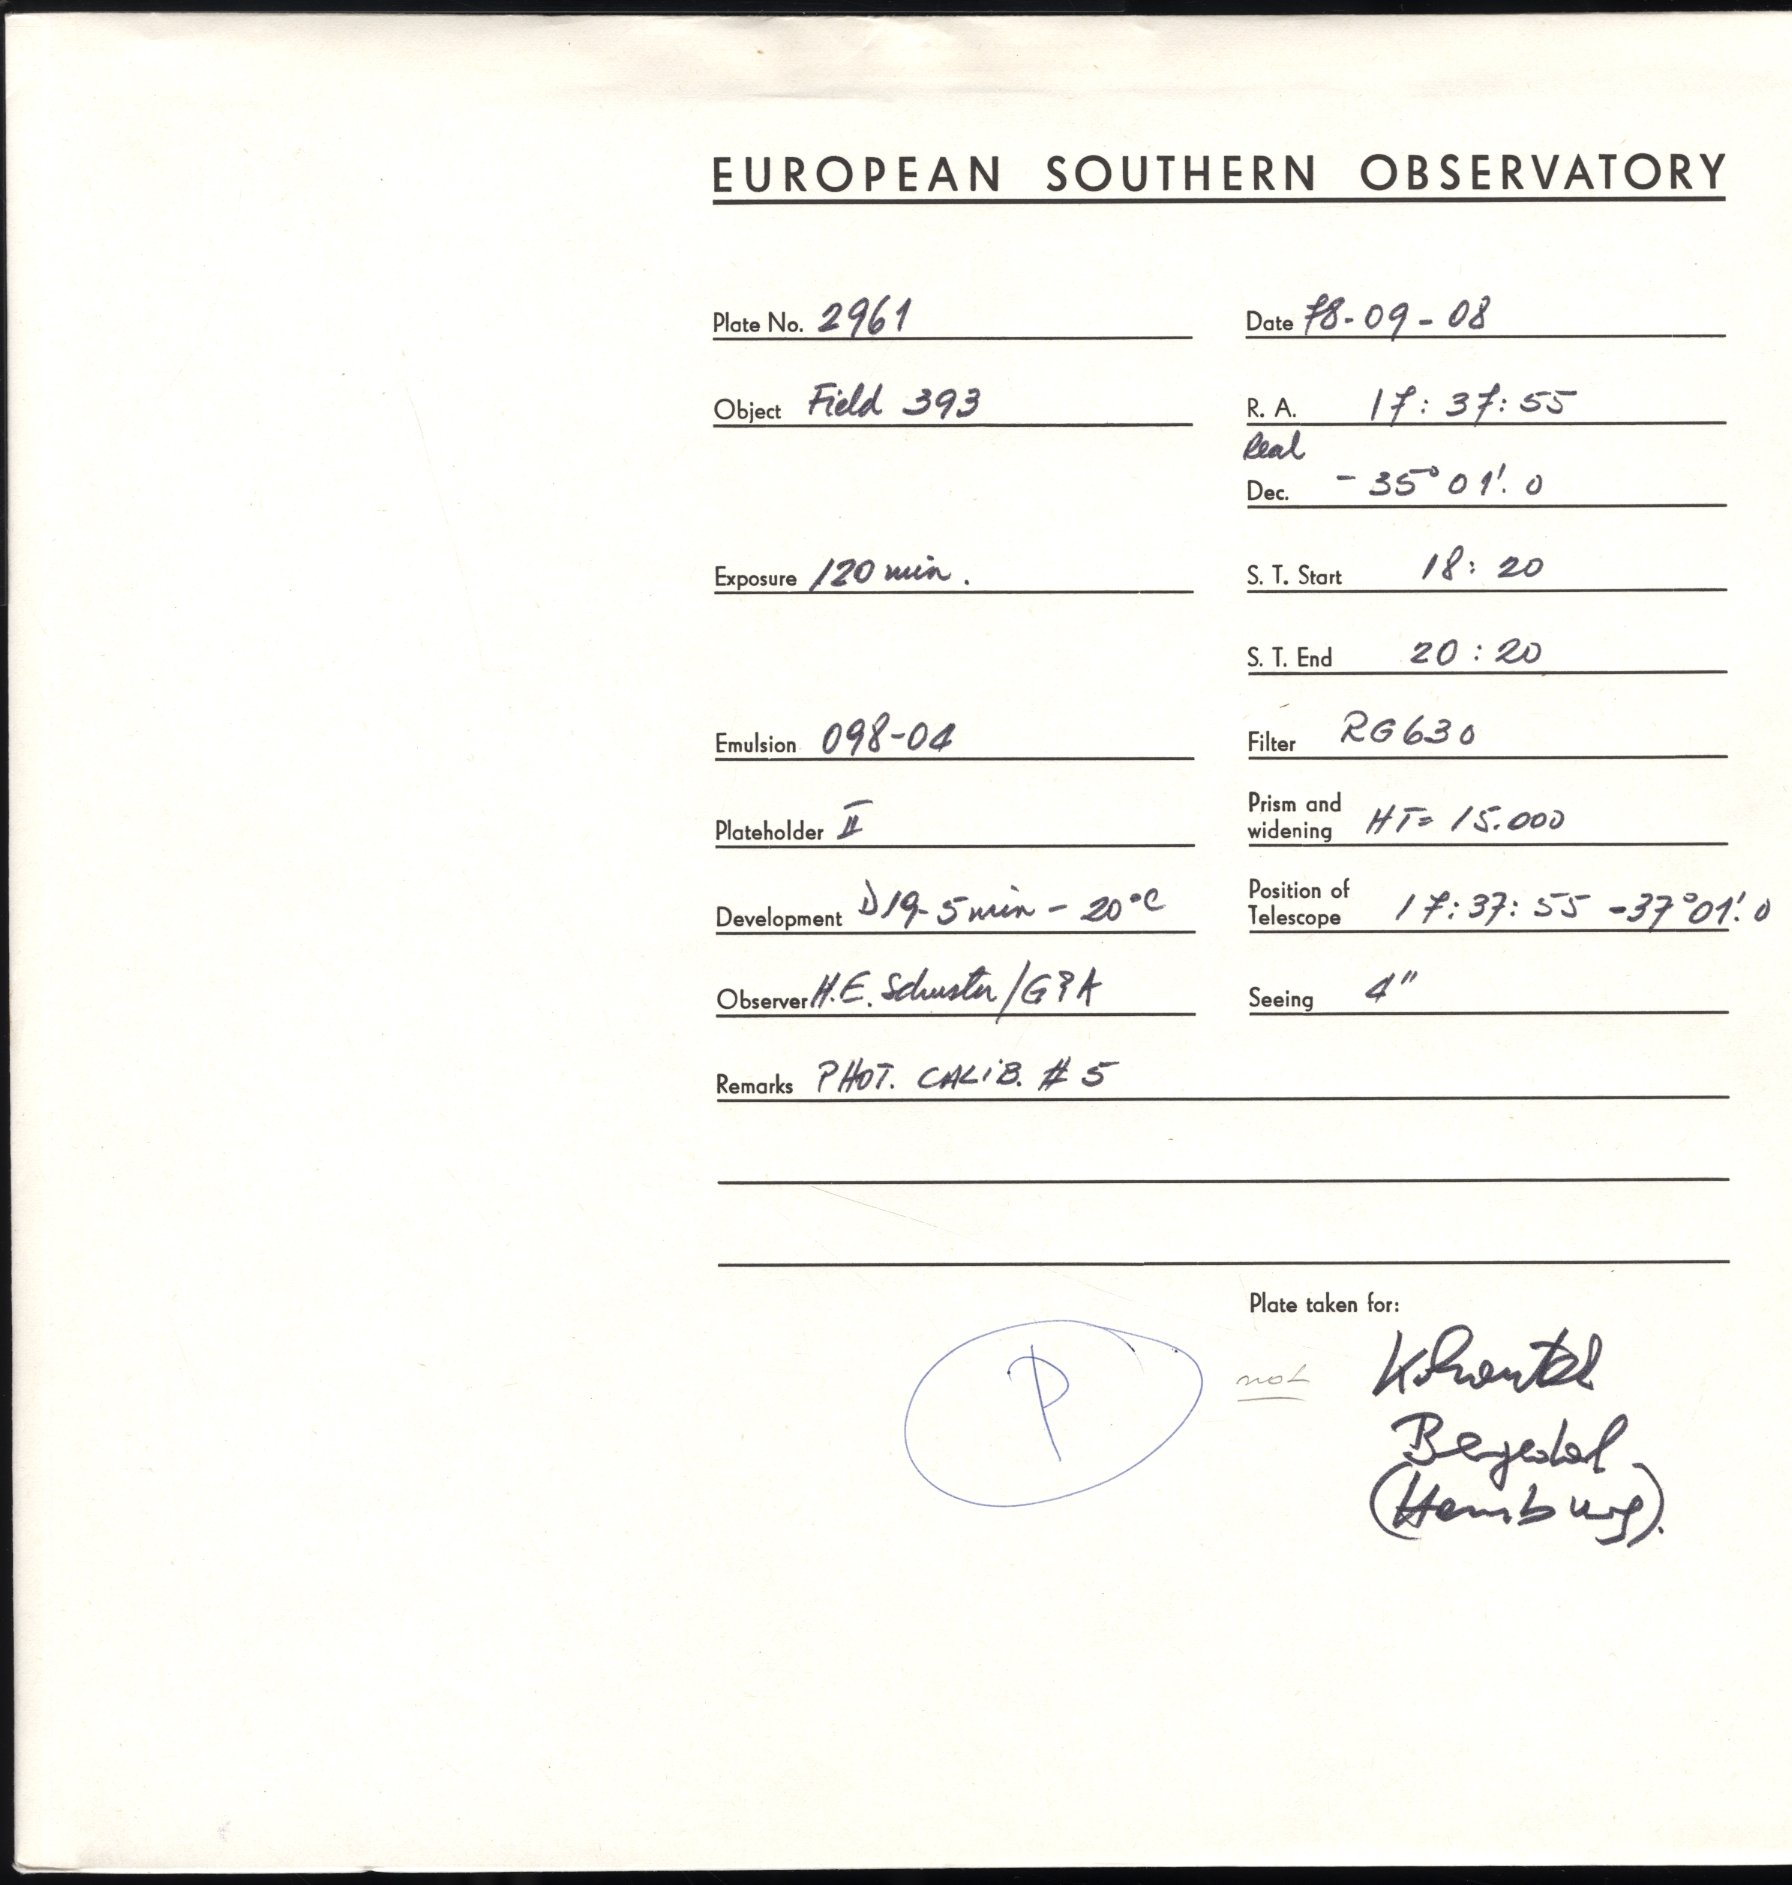 EUROPEAN SOUTHERN OBSERVATORY
Plate No. 2961
Date 78-09-08
Object Field 393
R. A. 17: 37: 55
Real
Dec. - 35° 01'. 0
Exposure 120 min.
S. T. Start 18: 20
S. T. End 20 : 20
Emulsion 098-04
Filter RG630
Plateholder II
Prism and
widening HT= 15.000
Development D19- 5 min - 20°C
Position of
Telescope 17: 37: 55 -37°01'. 0
Observer H.E. Schuster/G&A
Seeing 4"
Remarks PHOT. CALiB. # 5
Plate taken for:
P
not
Bergedorf
(Hamburg).